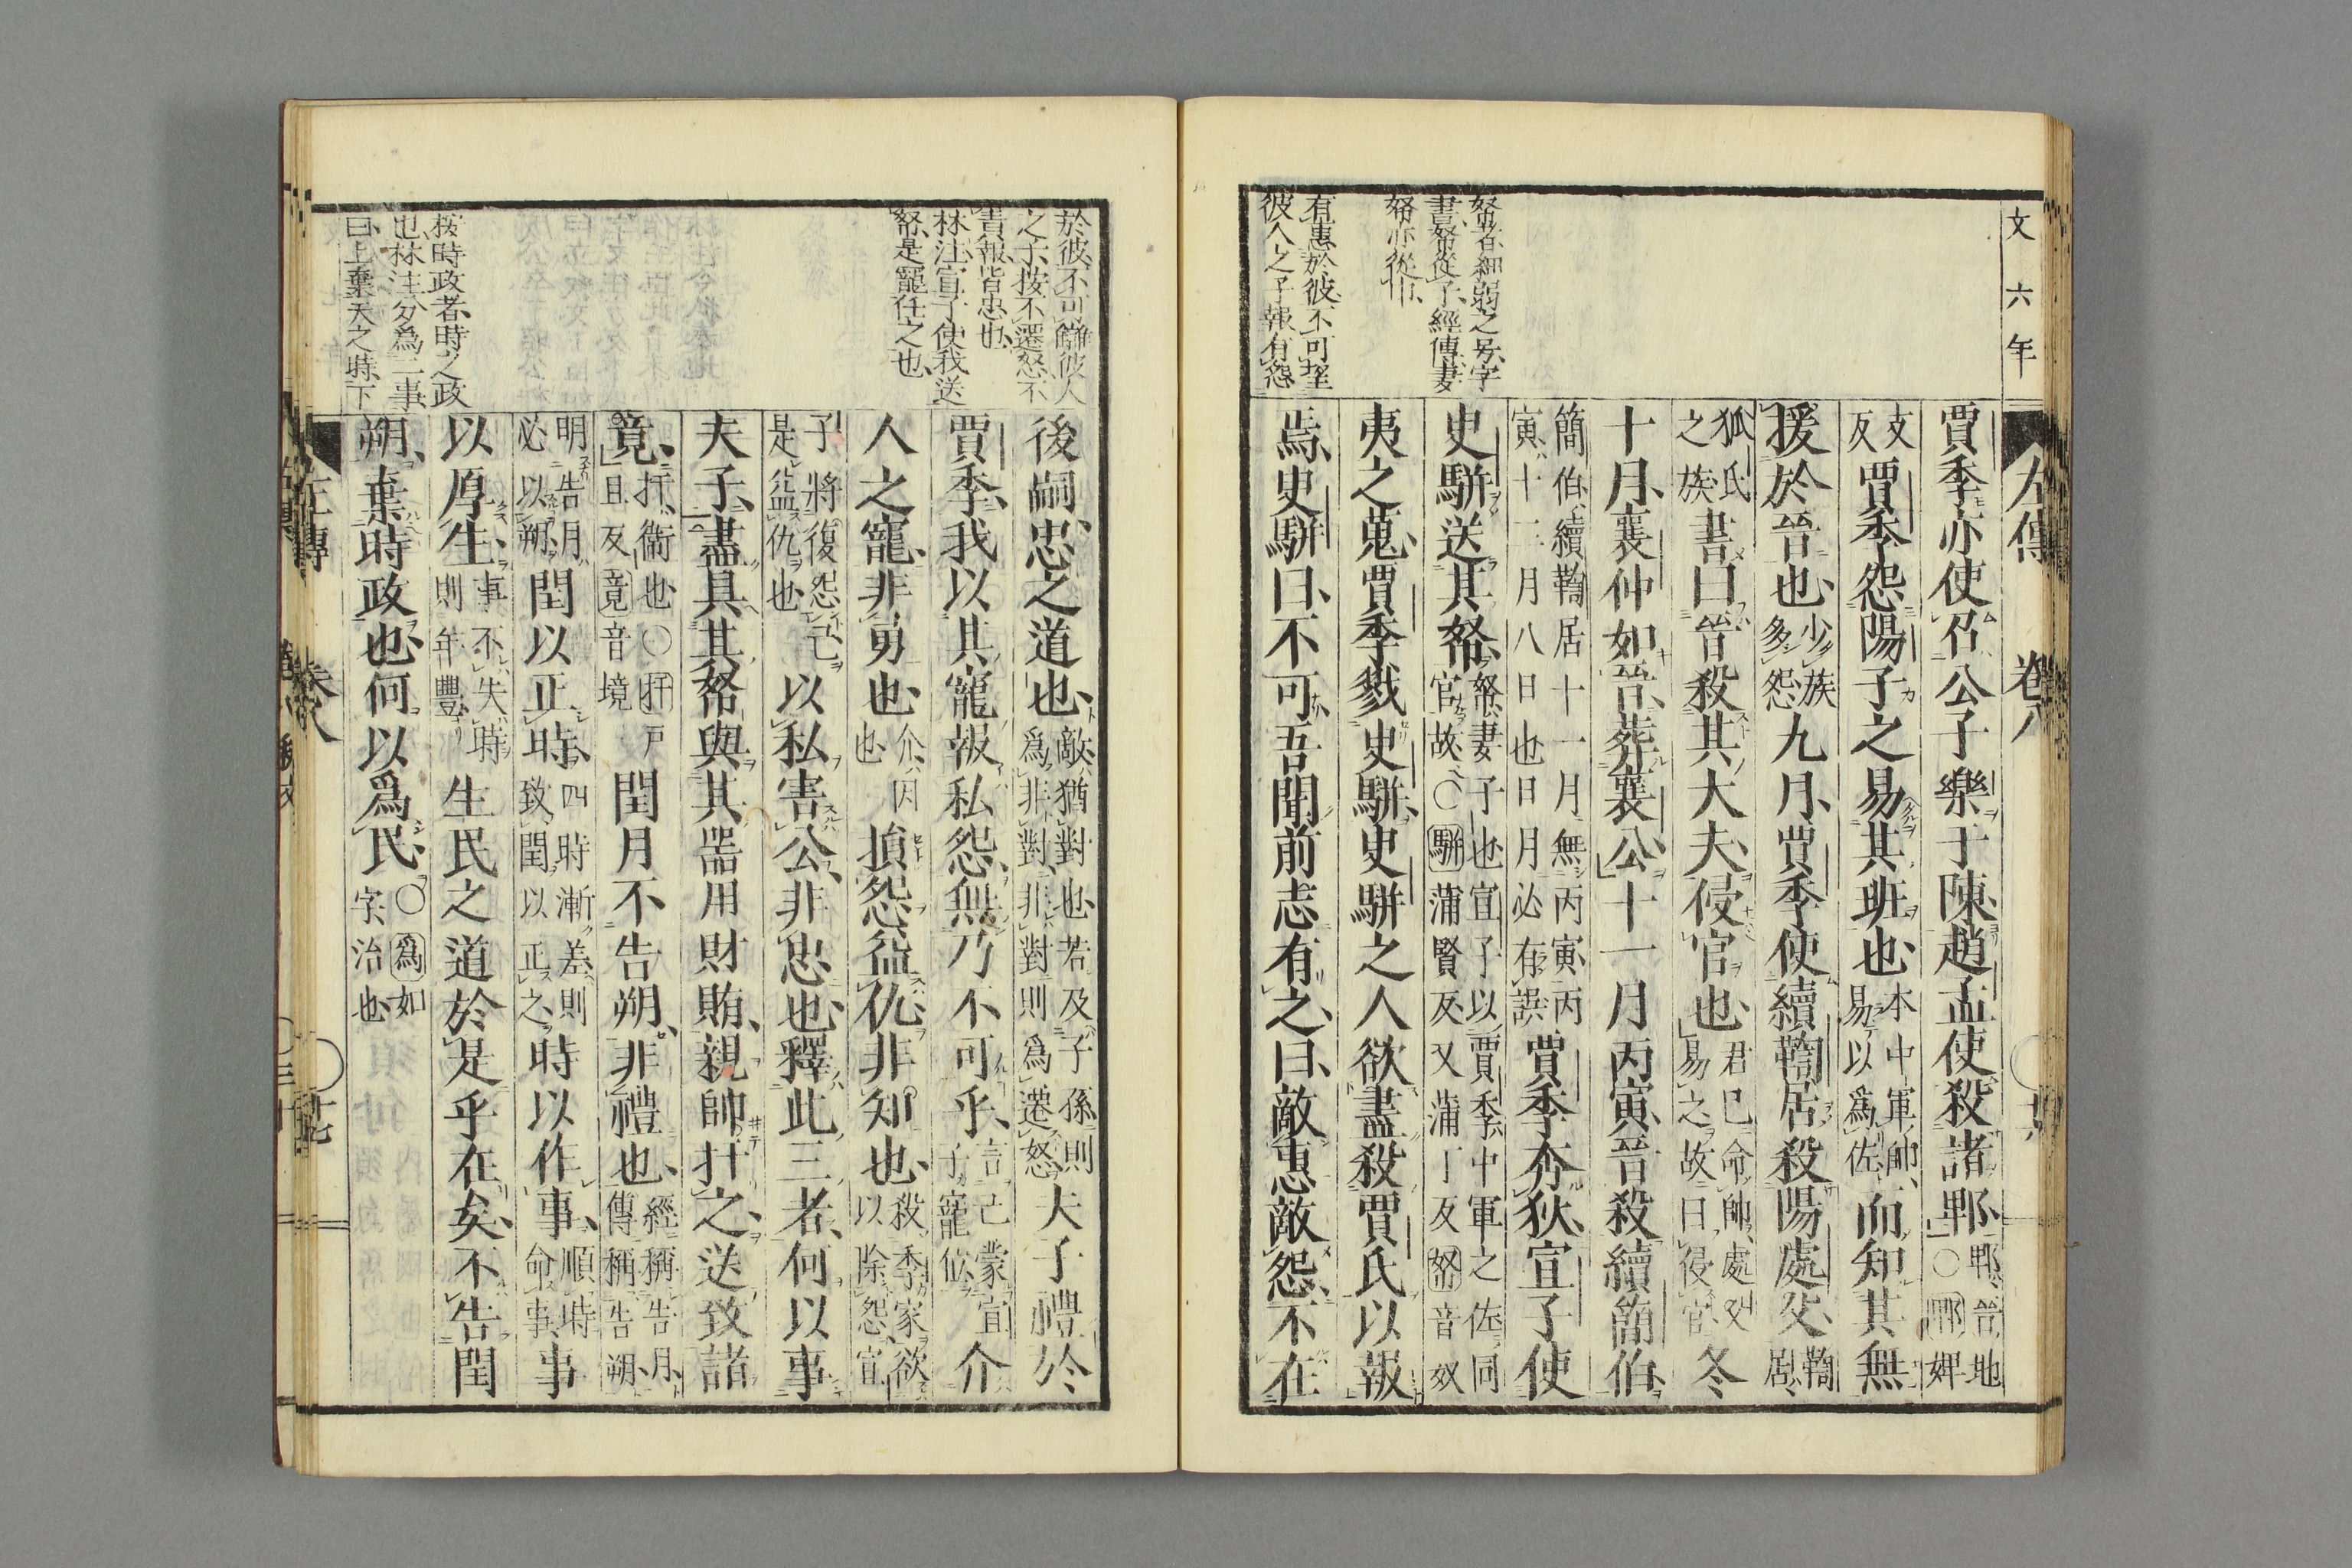 文六年
左傳 卷八
帑者細弱之号字
書帑從子經傳妻
帑亦從巾
有惠於彼不可望
彼人之子報有怨
賈季亦使召公子樂于陳趙孟使殺諸郫郫晉地○郫婢
支反賈季怨陽子之易其班也本中軍帥易以爲佐而知其無
援於晉也少族多怨九月賈季使續鞫居殺陽處父鞫居
狐氏之族書曰晉殺其大夫侵官也君已命帥處父易之故曰侵官冬
十月襄仲如晉葬襄公十一月丙寅晉殺續簡伯
簡伯續鞫居十一月無丙寅丙寅十二月八日也日月必有誤賈季奔狄宣子使
史駢送其帑帑妻子也宣子以賈季中軍之佐同官故○駢蒲賢反又蒲丁反帑音奴
夷之蒐賈季戮史駢史駢之人欲盡殺賈氏以報
焉史駢曰不可吾聞前志有之曰敵惠敵怨不在
於彼不可讎彼人
之子按不遷怒不
責報皆忠也
林注宣子使我送
帑是寵任之也
按時政者時之政
也林注分爲二事
曰上棄天之時下
後嗣忠之道也敵猶對也若及子孫則爲非對非對則爲遷怒夫子禮於
賈季我以其寵報私怨無乃不可乎言己蒙宣子寵位介
人之寵非勇也介因也損怨益仇非知也殺季家欲以除怨宣
子將復怨己是益仇也以私害公非忠也釋此三者何以事
夫子盡具其帑與其器用財賄親帥扞之送致諸
竟扞衞也○扞戸旦反竟音境閏月不告朔非禮也經稱告月傳稱告朔
明告月必以朔閏以正時四時漸差則致閏以正之時以作事順時命事事
以厚生事不失時則年豐生民之道於是乎在矣不告閏
朔棄時政也何以爲民○爲如字治也
左傳 卷八 十七